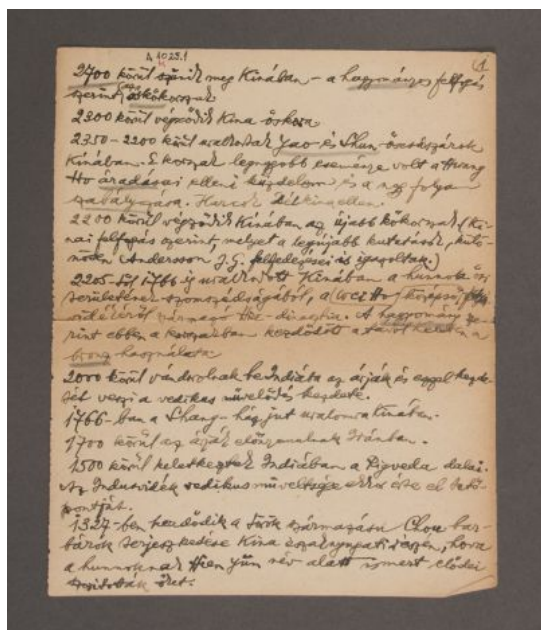 A 1025.1
1
2700 körül szűnik meg Kinában – a hagyományos felfogás
szerint, az őskőkorszak
2300 körül végződik Kina őskora
2350–2200 körül uralkodtak Yao és Shun őscsászárok
Kinában. E korszak legnagyobb eseménye volt a Hwang
Ho áradásai elleni küzdelem és a nagy folyam
szabályozása. Harcok
2200 körül végződik Kinában az újabb kőkorszak (Ki-
nai felfogás szerint, melyet a legújabb kutatások, külö-
nösen Andersson J.G. felfedezései is igazoltak.)
2205-től 1766 ig uralkodott Kinában a hunnok ősi
területének szomszédságából, a (Wei Ho) középső
vidékéről származó dinasztia. A hagyomány sze-
rint ebben a korszakban kezdődött a távol keleten a
bronz használata
2000 körül vándorolnak be Indiába az árják és ezzel kezde-
tét veszi a vedikus művelődés kezdete.
1766-ban a Shang-ház jut uralomra Kinában.
1700 körül az árják előnyomulnak Iránban.
1500 körül keletkeztek Indiában a Rigveda dalai.
Az Indusvidék vedikus műveltsége ekkor érte el tető-
pontját.
1327-ben kezdődik a török származású Chou bar-
bárok terjeszkedése Kina északnyugati részén, hova
a hunnoknak Hien Yün név alatt ismert elődei
szorították őket.